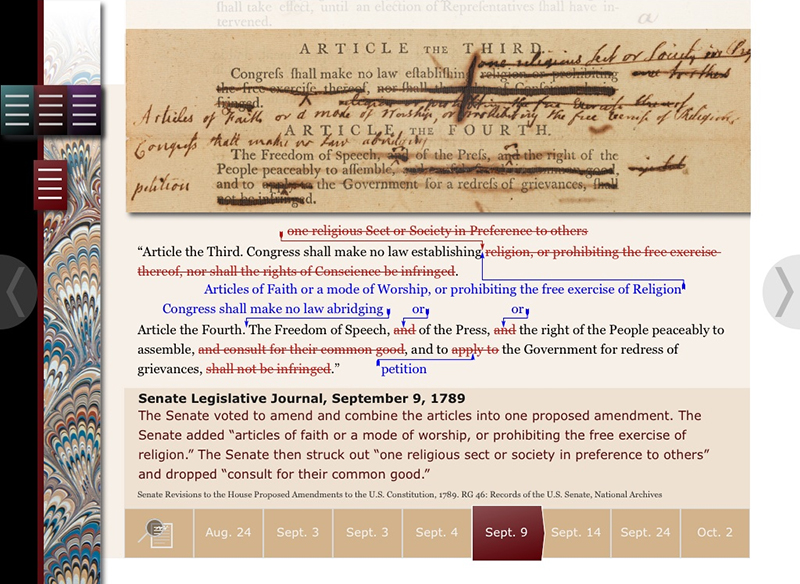 ſhall take effect, until an election of Repreſentatives ſhall have in-
tervened.
a
ARTICLE THE THIRD.
one religious Sect or Society in Pre
Congreſs ſhall make no law eſtabliſhing religion or prohibiting
to others
the free exerciſe thereof, nor ſhall the rights of Conſcience be in-
fringed.
Articles of Faith or a mode of Worship, or prohibiting the free exercise of Religion,
ARTICLE THE FOURTH.
Congress shall make no law abridging
The Freedom of Speech, and of the Preſs, and the right of the
People peaceably to aſſemble, and conſult for their common good,
petition
and to apply to the Government for a redreſs of grievances, ſhall
not be infringed.
one religious Sect or Society in Preference to others
“Article the Third. Congress shall make no law establishing religion, or prohibiting the free exercise
thereof, nor shall the rights of Conscience be infringed.
Articles of Faith or a mode of Worship, or prohibiting the free exercise of Religion
Congress shall make no law abridging or or
Article the Fourth. The Freedom of Speech, and of the Press, and the right of the People peaceably to
assemble, and consult for their common good, and to apply to the Government for redress of
grievances, shall not be infringed.”
petition
Senate Legislative Journal, September 9, 1789
The Senate voted to amend and combine the articles into one proposed amendment. The
Senate added “articles of faith or a mode of worship, or prohibiting the free exercise of
religion.” The Senate then struck out “one religious sect or society in preference to others”
and dropped “consult for their common good.”
Senate Revisions to the House Proposed Amendments to the U.S. Constitution, 1789. RG 46: Records of the U.S. Senate, National Archives
Aug. 24
Sept. 3
Sept. 3
Sept. 4
Sept. 9
Sept. 14
Sept. 24
Oct. 2